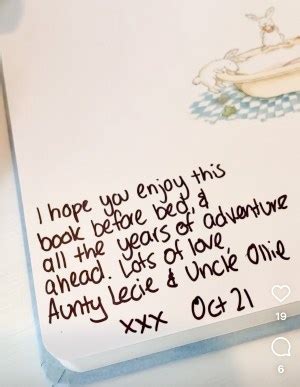 I hope you enjoy this
book before bed, &
all the years of adventure
ahead. Lots of love,
Aunty Lecie & Uncle Ollie
xxx Oct 21
19
6